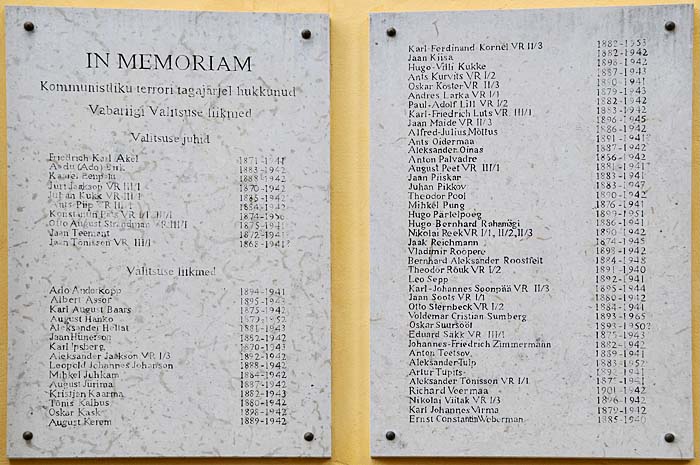 IN MEMORIAM
Kommunistliku terrori tagajärjel hukkunud
Vabariigi Valitsuse liikmed
Valitsuse juhid
Friedrich Karl Akel 1871-1941
Aadu (Ado) Birk 1883-1942
Kaarel Eenpalu 1888-1942
Jüri Jaakson VR III/1 1870-1942
Juhan Kukk VR III/1 1885-1942
Ants Piip VR III/1 1884-1942
Konstantin Päts VR I/1, III/1 1874-1956
Otto August Strandman VR III/1 1875-1941
Jaan Teemant 1872-1941?
Jaan Tõnisson VR III/1 1868-1941?
Valitsuse liikmed
Ado Anderkopp 1894-1941
Albert Assor 1895-1943
Karl August Baars 1875-1942
August Hanko 1879-1952
Aleksander Hellat 1881-1943
Jaan Hünerson 1882-1942
Karl Ipsberg 1870-1943
Aleksander Jaakson VR I/3 1892-1942
Leopold Johannes Johanson 1888-1942
Mihkel Juhkam 1884-1942
August Jürima 1887-1942
Kristjan Kaarma 1882-1943
Tõnis Kalbus 1880-1942
Oskar Kask 1898-1942
August Kerem 1889-1942
Karl-Ferdinand Kornel VR II/3 1882-1953
Jaan Kriisa 1882-1942
Hugo-Villi Kukke 1898-1942
Ants Kurvits VR I/2 1887-1943
Oskar Köster VR II/3 1890-1941
Andres Larka VR I/1 1879-1943
Paul-Adolf Lill VR I/2 1882-1942
Karl-Friedrich Luts VR III/1 1883-1942
Jaan Maide VR II/3 1896-1945
Alfred-Julius Mõttus 1886-1942
Ants Oidermaa 1891-1941
Aleksander Oinas 1887-1942
Anton Palvadre 1886-1942
August Peet VR III/1 1881-1941
Jaan Piiskar 1883-1941
Juhan Pikkov 1883-1942
Theodor Pool 1890-1942
Mihkel Pung 1876-1941
Hugo Pärtelpoeg 1899-1951
Hugo-Bernhard Rahamägi 1886-1941
Nikolai Reek VR I/1, II/2, II/3 1890-1942
Jaak Reichmann 1874-1945
Vladimir Roopere 1893-1942
Bernhard Aleksander Roostfelt 1884-1948
Theodor Rõuk VR I/2 1891-1940
Leo Sepp 1892-1941
Karl-Johannes Soonpää VR II/3 1895-1944
Jaan Soots VR I/1 1880-1942
Otto Sternbeck VR I/2 1884-1941
Voldemar Cristian Sumberg 1893-1965
Oskar Suursööt 1893-1950?
Eduard Säkk VR III/1 1875-1943
Johannes-Friedrich Zimmermann 1882-1942
Anton Teetsov 1889-1941
Aleksander Tulp 1883-1952
Artur Tupits 1892-1941
Aleksander Tõnisson VR I/1 1875-1941
Richard Veermaa 1901-1942
Nikolai Viitak VR I/3 1896-1942
Karl Johannes Virma 1879-1942
Ernst Constantin Weberman 1885-1940